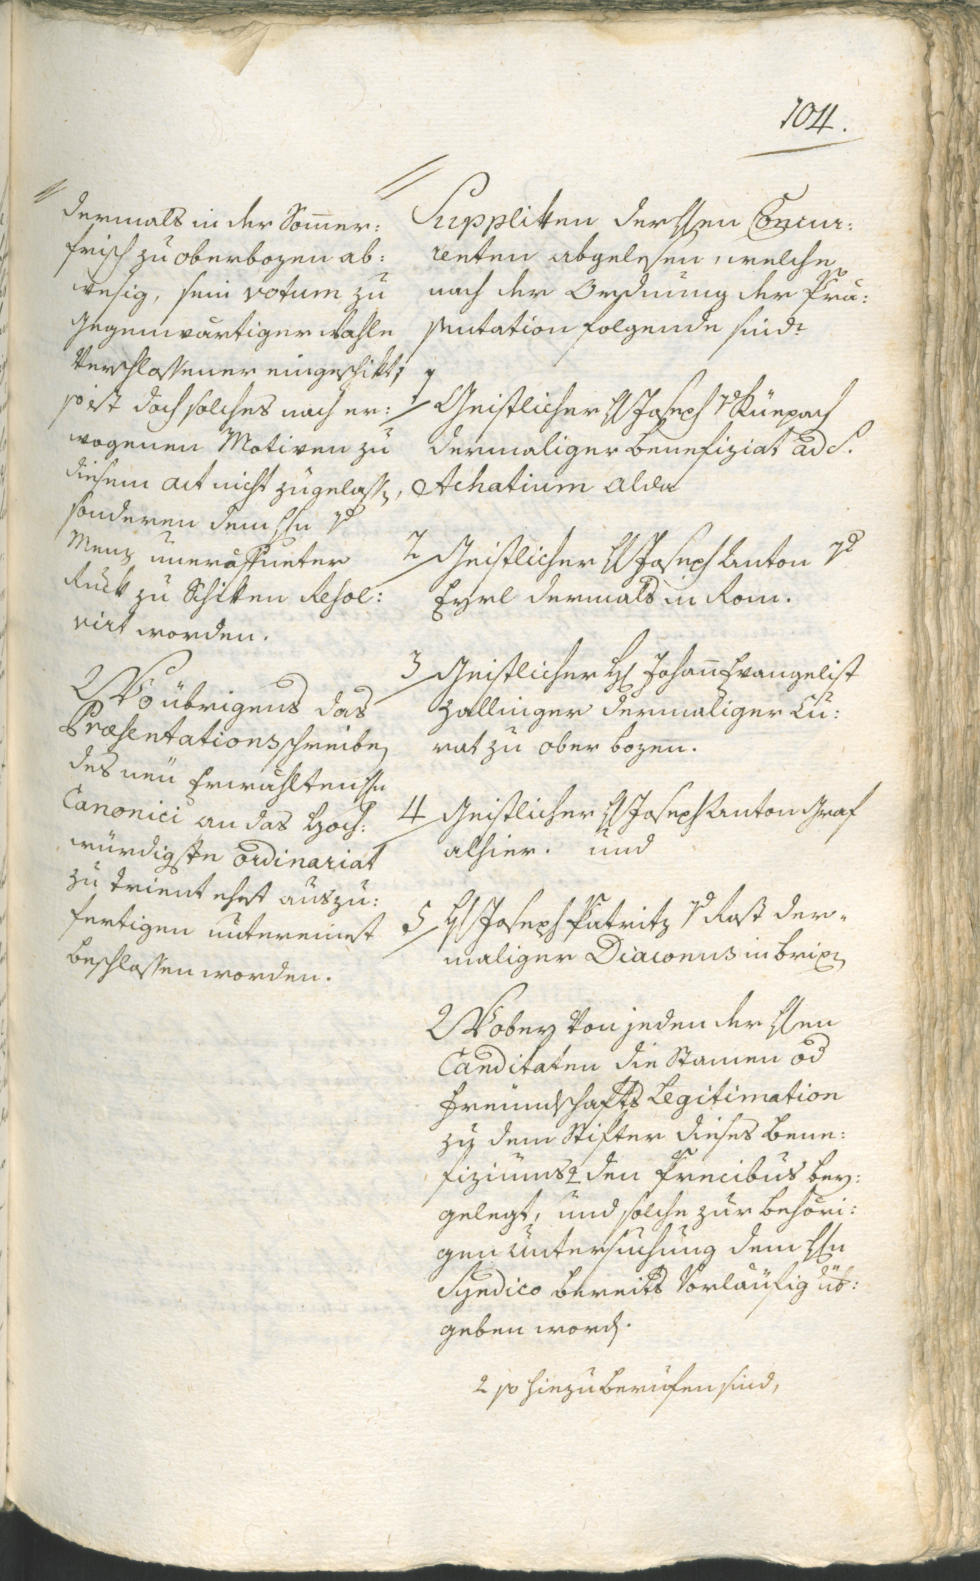 104.
dermals in der Som̅er:
frisch zu oberbozen ab:
wesig, sein votum zu
gegenwärtiger wahle
verschlossener eingeschikt;
so ist doch solches nach er:
wogenen Motiven zu
diesem act nicht zugelassen,
sonderen dem Hn v
Menz uneröffneter
rukh zu schikken resol:
virt worden.
Wo übrigens das
Præsentations schreiben
des neü Erwählten Hn
Canonici an das Hoch:
würdigste ordinariat
zu trient ehest auszu:
fertigen untereinest
beschlossen worden.
Supplikken deren Hen Concur:
renten abgelesen, welche
nach der Ordnung der Præ:
sentation folgende sind:
1 Geistlicher H Joseph v Küepach
dermaliger benefiziat ad S.
Achatium alda
2 Geistlicher H Joseph Anton v
Eyrl dermals in Rom.
3 Geistlicher H Johan̅ Evangelist
Zallinger dermaliger Cu:
rat zu oberbozen.
4 Geistlicher H Joseph Anton Graf
alhier. und
5 H Joseph Patritz v Rost der-
maliger Diaconus in brixen
Wobey von jeden der Hen
Canditaten die Stamen od
freundschafts Legitimation
zu dem Stifter dieses bene:
fiziums den Precibus bey:
gelegt, und solche zur behöri:
gen untersuchung dem Hn
Syndico bereits vorläufig üb:
geben worden.
so hiezu berufen sind,